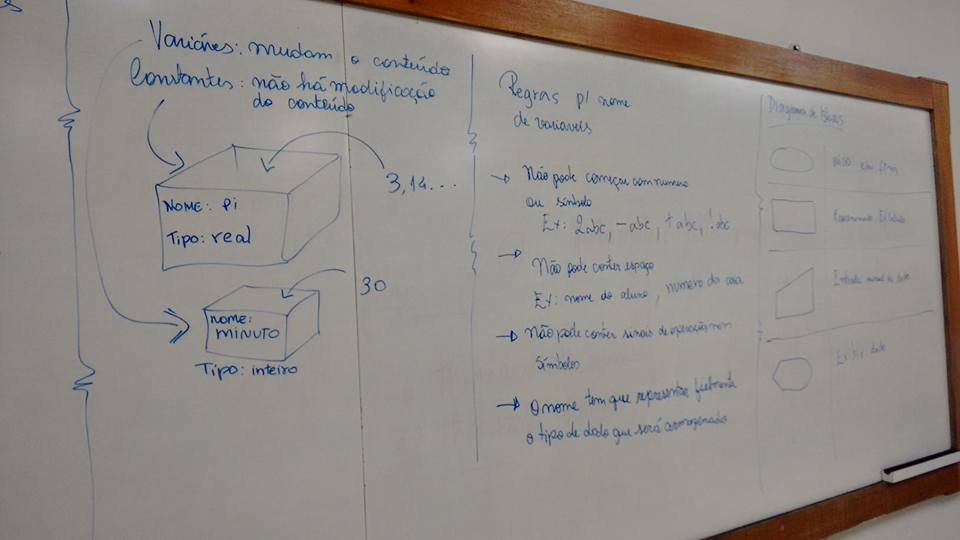 Variáves: mudam o conteúdo
Constantes: não há modificação
do conteúdo
3,14...
NOME: Pi
TIPO: real
30
NOME:
MINUTO
TIPO: inteiro
Regras p/ nome
de variaveis
→ Não pode começar com numero
ou símbolo
Ex: 2abc, -abc, +abc, !abc
→ Não pode conter espaço
Ex: nome do aluno, numero da casa
→ Não pode conter sinais de operação nem
símbolos
→ O nome tem que representar fielmente
o tipo de dado que será armazenado
Diagrama de Blocos
início ou fim
Processamento
Entrada manual de dado
Exibir dado